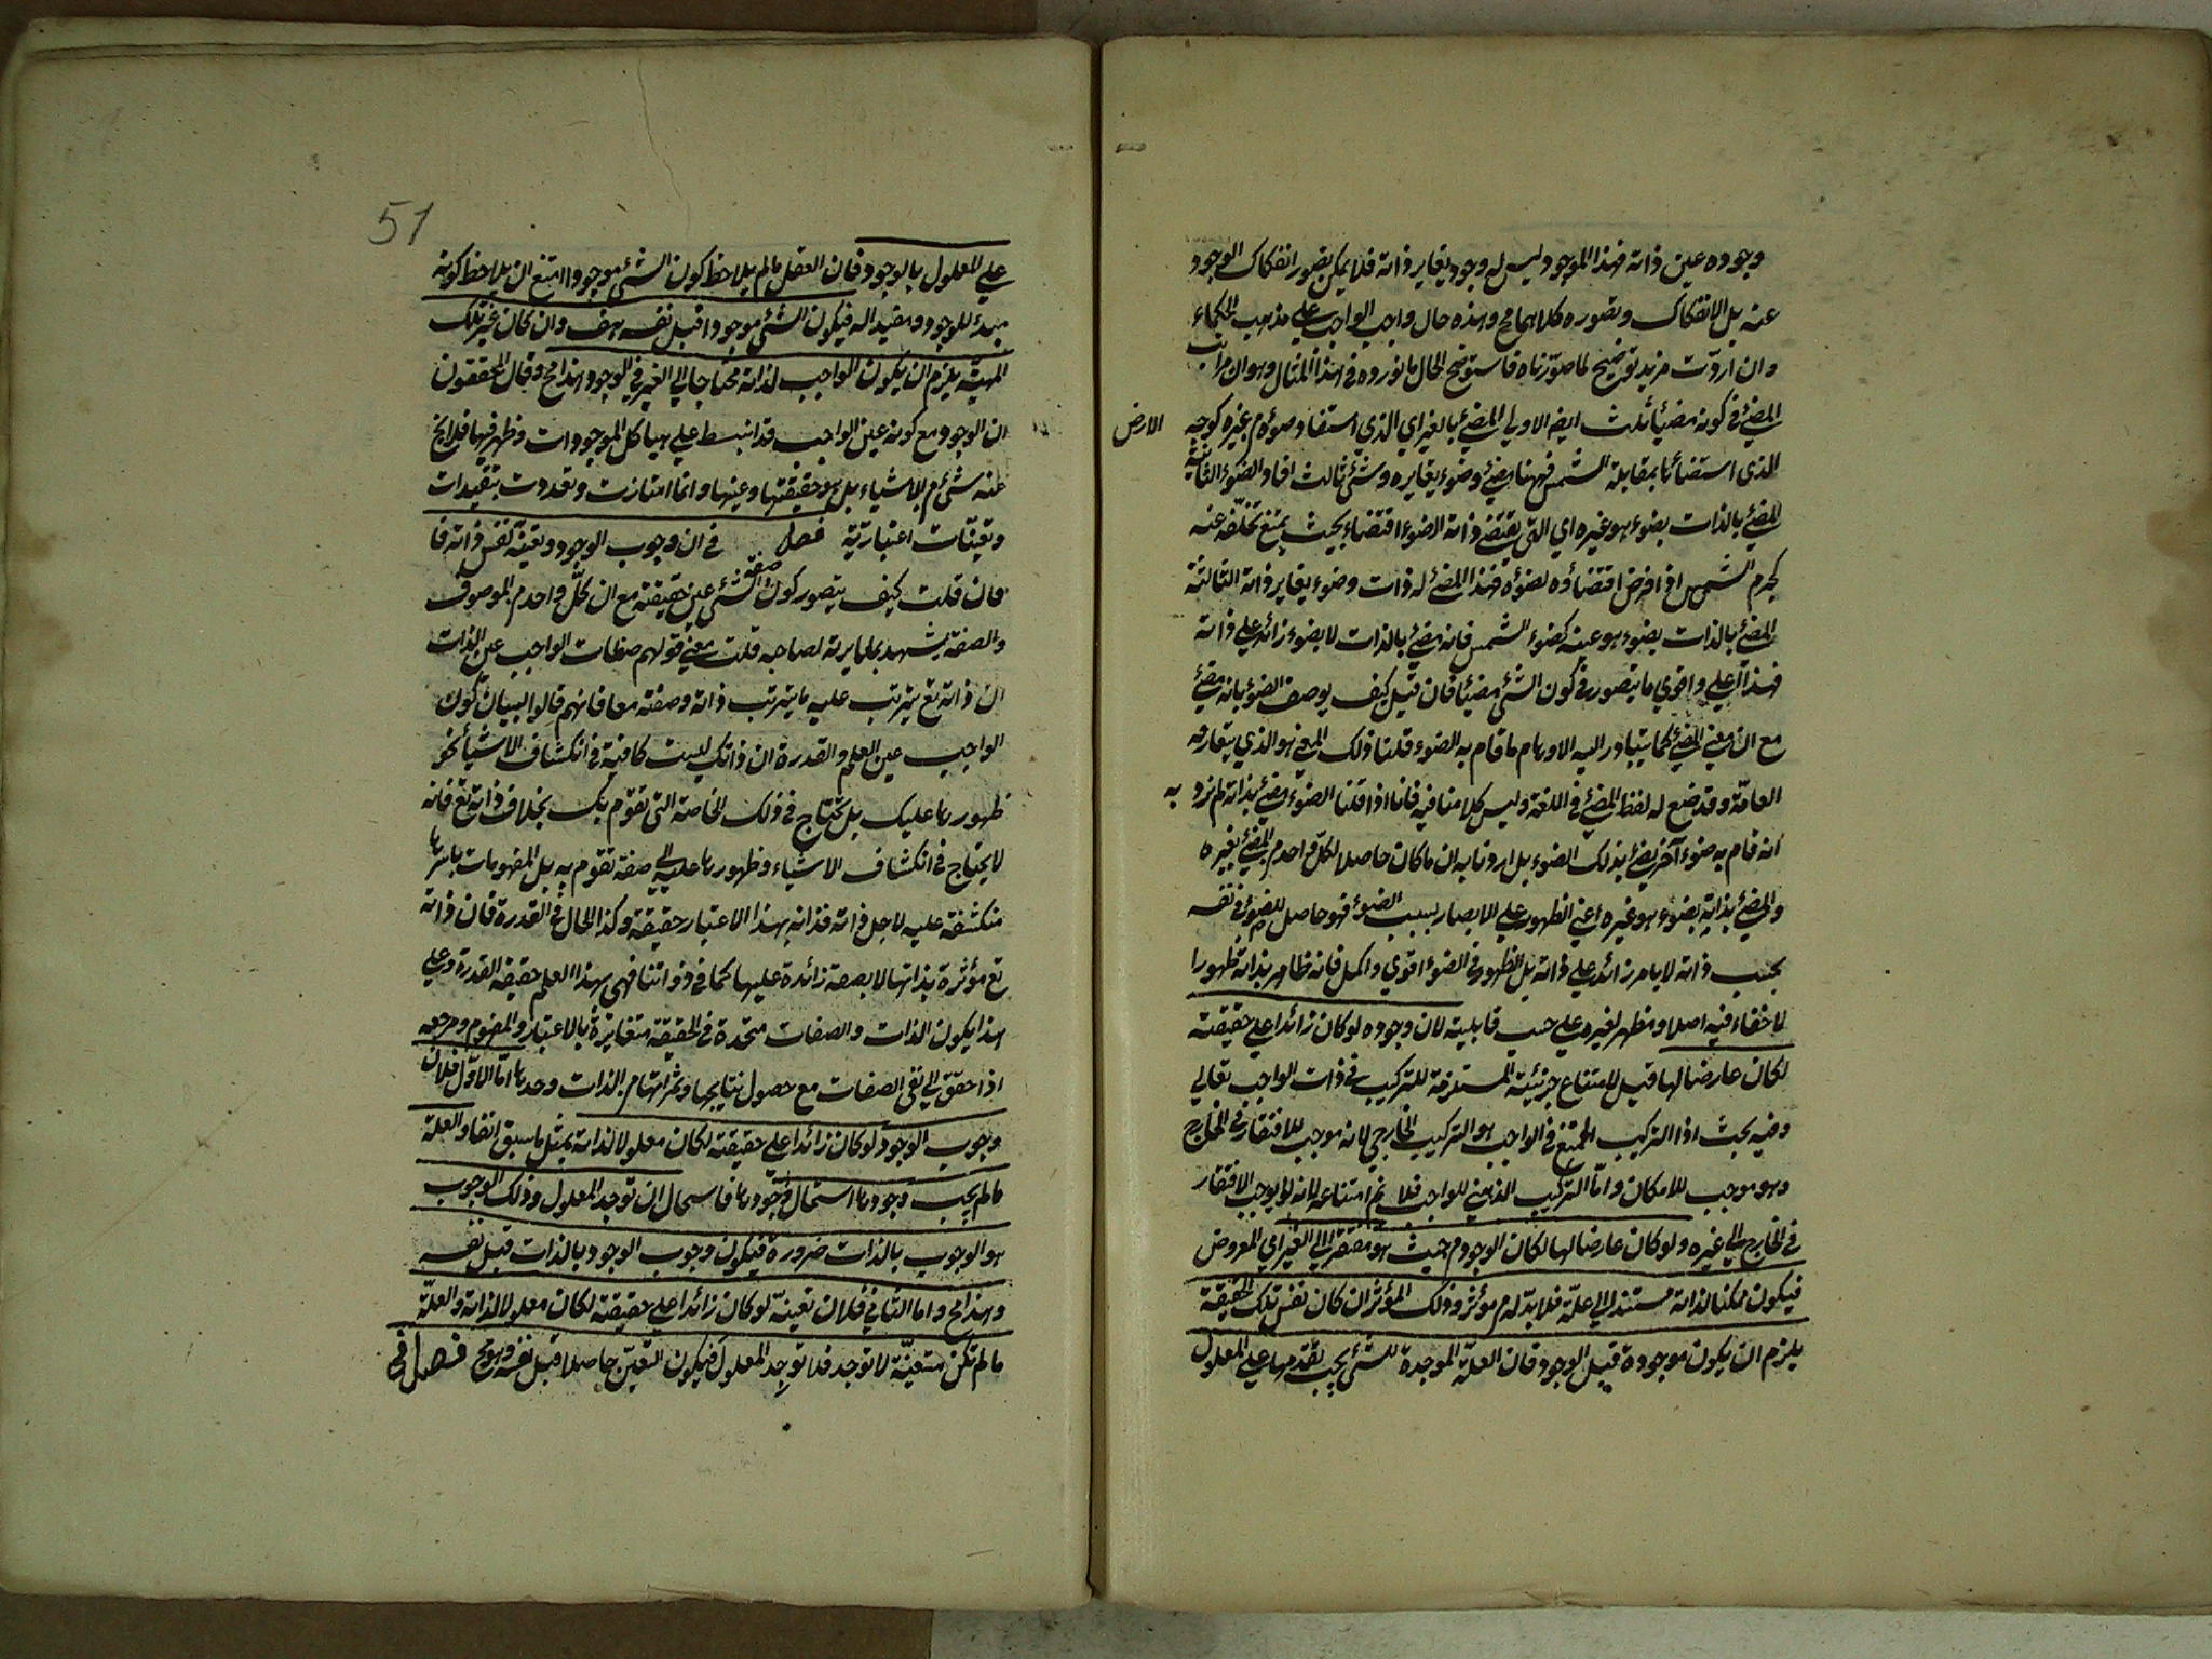 وجوده عين ذاته فهذا الموجود ليس له وجود يغاير ذاته فلا يمكن تصور انفكاك الوجود
عنه بل الانفكاك وتصوره كلاهما مح وهذه حال واجب الواجب علي مذهب الحكماء
وان اردت مزيد توضيح لما صورناه فاستوضح الحال مانورده في هذا المثال وهو ان مراتب
المضئ في كونه مضيئا ثلث ايضا الاولي المضئ بالغير اي الذي استفاد ضوءه م غيره كوجه الارض
الذي استضاء بمقابلة الشمس فههنا مضئ وضوء يغايره وشئ ثالث افاد الضوء الثانية
المضئ بالذات بضوء هو غيره اي التي يقتضي ذاته الضوء اقتضاء بحيث يمتنع تخلفه عنه
كجرم الشمس اذا فرض اقتضاؤه لضوءه فهذا المضئ له ذات وضوء يغاير ذاته الثالثة
المضئ بالذات بضوء هو عينه كضوء الشمس فانه مضئ بالذات لا بضوء زائد علي ذاته
فهذا اعلي واقوي ما يتصور في كون الشئ مضيئا فان قيل كيف يوصف الضوء بانه مضئ
مع ان معني المضئ كما يتبادر اليه الاوهام ما قام به الضوء قلنا ذلك المعني هو الذي يتعارفه
العامة وقد وضع له لفظ المضئ في اللغة وليس كلامنا فيه فانا اذا قلنا الضوء مضئ بذاته لم نرد به
انه قام به ضوء آخر يضئ بذلك الضوء بل اردنا به ان ما كان حاصلا لكل واحد م المضئ بغيره
والمضئ بذاته بضوء هو غيره اعني الظهور علي الابصار بسبب الضوء فهو حاصل للضوء في نفسه
بحسب ذاته لا بامر زائد علي ذاته بل الظهور في الضوء اقوي واكمل فانه ظاهر بذاته ظهورا
لا خفاء فيه اصلا ومظهر لغيره علي حسب قابليته لان وجوده لو كان زائدا علي حقيقته
لكان عارضا لها قيل لامتناع جزئيته المستلزمة للتركيب في ذات الواجب تعالي
وفيه بحث اذا التركيب الممتنع في الواجب هو التركيب الخارجي لانه موجب للافتقار في الخارج
وهو موجب للامكان واما التركيب الذهني للواجب فلا نم امتناعه لانه لا يوجب الافتقار
في الخارج الي غيره ولو كان عارضا لها لكان الوجود م حيث هو مفتقرا الي الغير اي المعروض
فيكون ممكنا لذاته مستندا الي علة فلا بد له م مؤثر وذلك المؤثر ان كان نفس تلك الحقيقة
يلزم ان يكون موجودة قبل الوجود فان العلة الموجدة للشئ يجب تقدمها علي المعلول
51
علي المعلول بالوجود فان العقل مالم يلاحظ كون الشئ موجودا امتنع ان يلاحظ كونه
مبدء للوجود ومفيدا له فيكون الشئ موجودا قبل نفسه هف وان كان غير تلك
المهية يلزم ان يكون الواجب لذاته محتاجا الي الغير في الوجود هذا مح وقال المحققون
ان الوجود مع كونه عين الواجب قد انبسط علي هياكل الموجودات وظهر فيها فلا يخ
عنه شئ م الاشياء بل هو حقيقتها وعينها وانما امتازت وتعددت بتقيدات
وتعينات اعتبارية فصل في ان وجوب الوجود وتعينه نفس ذاته فا
فان قلت كيف يتصور كون صفة الشئ عين حقيقته مع ان كل واحد م الموصوف
والصفة يشهد بمغايرته لصاحبه قلت معني قولهم صفات الواجب عين الذات
ان ذاته تع يترتب عليه ما يترتب ذاته وصفته معا فانهم قالوا لبيان كون
الواجب عين العلم والقدرة ان ذاتك ليست كافية في انكشاف الاشياء نحو
ظهورها عليك بل تحتاج في ذلك الخاصة التي تقوم بك بخلاف ذاته تع فانه
لا يحتاج في انكشاف الاشياء وظهورها عليه الي صفة تقوم به بل المفهومات باسرها
منكشفة عليه لاجل ذاته فذاته بهذا الاعتبار حقيقة وكذا الحال في القدرة فان ذاته
تع مؤثرة بذاتها لا بصفة زائدة عليها كما في ذواتنا فهي بهذا العلم حقيقة القدرة وعلي
هذا يكون الذات والصفات متحدة في الحقيقة متغايرة بالاعتبار والمفهوم ومرجعه
اذا حقق الي نفي الصفات مع حصول نتايجها وثمراتها م الذات وحدها اما الاول فلان
وجوب الوجود لو كان زائدا علي حقيقته لكان معلولا لذاته بمثل ما سبق انفا والعلة
مالم يجب وجودها استحال وجودها فاستحال ان توجد المعلول وذلك الوجوب
هو الوجوب بالذات ضرورة فيكون وجوب الوجود بالذات قبل نفسه
وهذا مح واما الثاني فلان تعينه لو كان زائدا علي حقيقته لكان معلولا لذاته والعلة
مالم تكن متعينة لا توجد فلا توجد المعلول فيكون التعين حاصلا قبل نفسه وهو مح فصل في